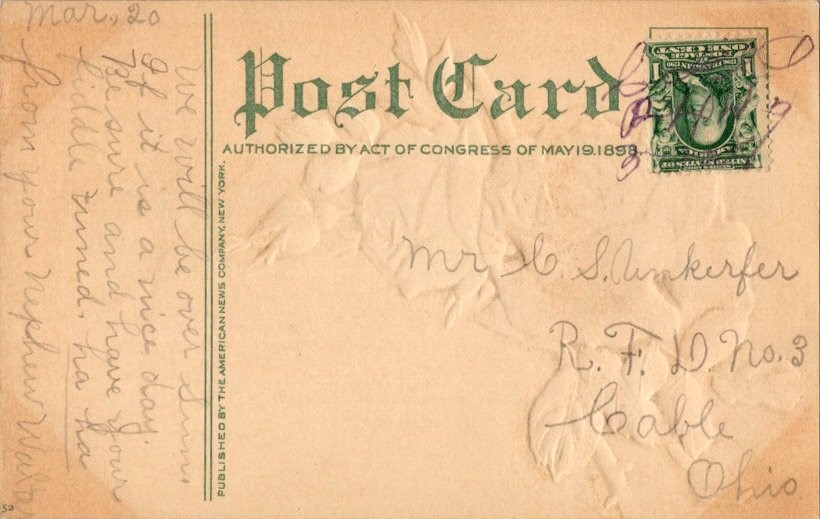 Post Card
AUTHORIZED BY ACT OF CONGRESS OF MAY 19.1898.
PUBLISHED BY THE AMERICAN NEWS COMPANY, NEW YORK.
Mar. 20
We will be over Sun.
If it is a nice day.
Be sure and have your
fiddle tuned. ha ha
from your Nephew Walter
Mr C. S. Unkerfer
R. F. D. No. 3
Cable
Ohio.
ONE CENT
1 1
52